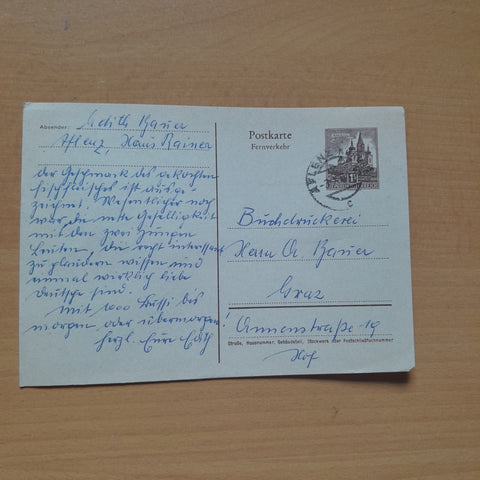 Absender: Edith Bauer
Aflenz, Haus Rainer
der Geschmack des gekochten
Fischfleisches ist ausge-
zeichnet. Wesentlicher noch
war die nette Geselligkeit
mit den zwei jungen
Leuten, die recht interessant
zu plaudern wissen und
einmal wirklich liebe
Deutsche sind.
Mit 1000 Bussi bis
morgen oder übermorgen!
herzl. Eure Edith
Postkarte
Fernverkehr
AFLENZ
c
Buchdruckerei
Herrn A. Bauer
Graz
Annenstraße 19
Straße, Hausnummer, Gebäudeteil, Stockwerk oder Postschließfachnummer
Hof